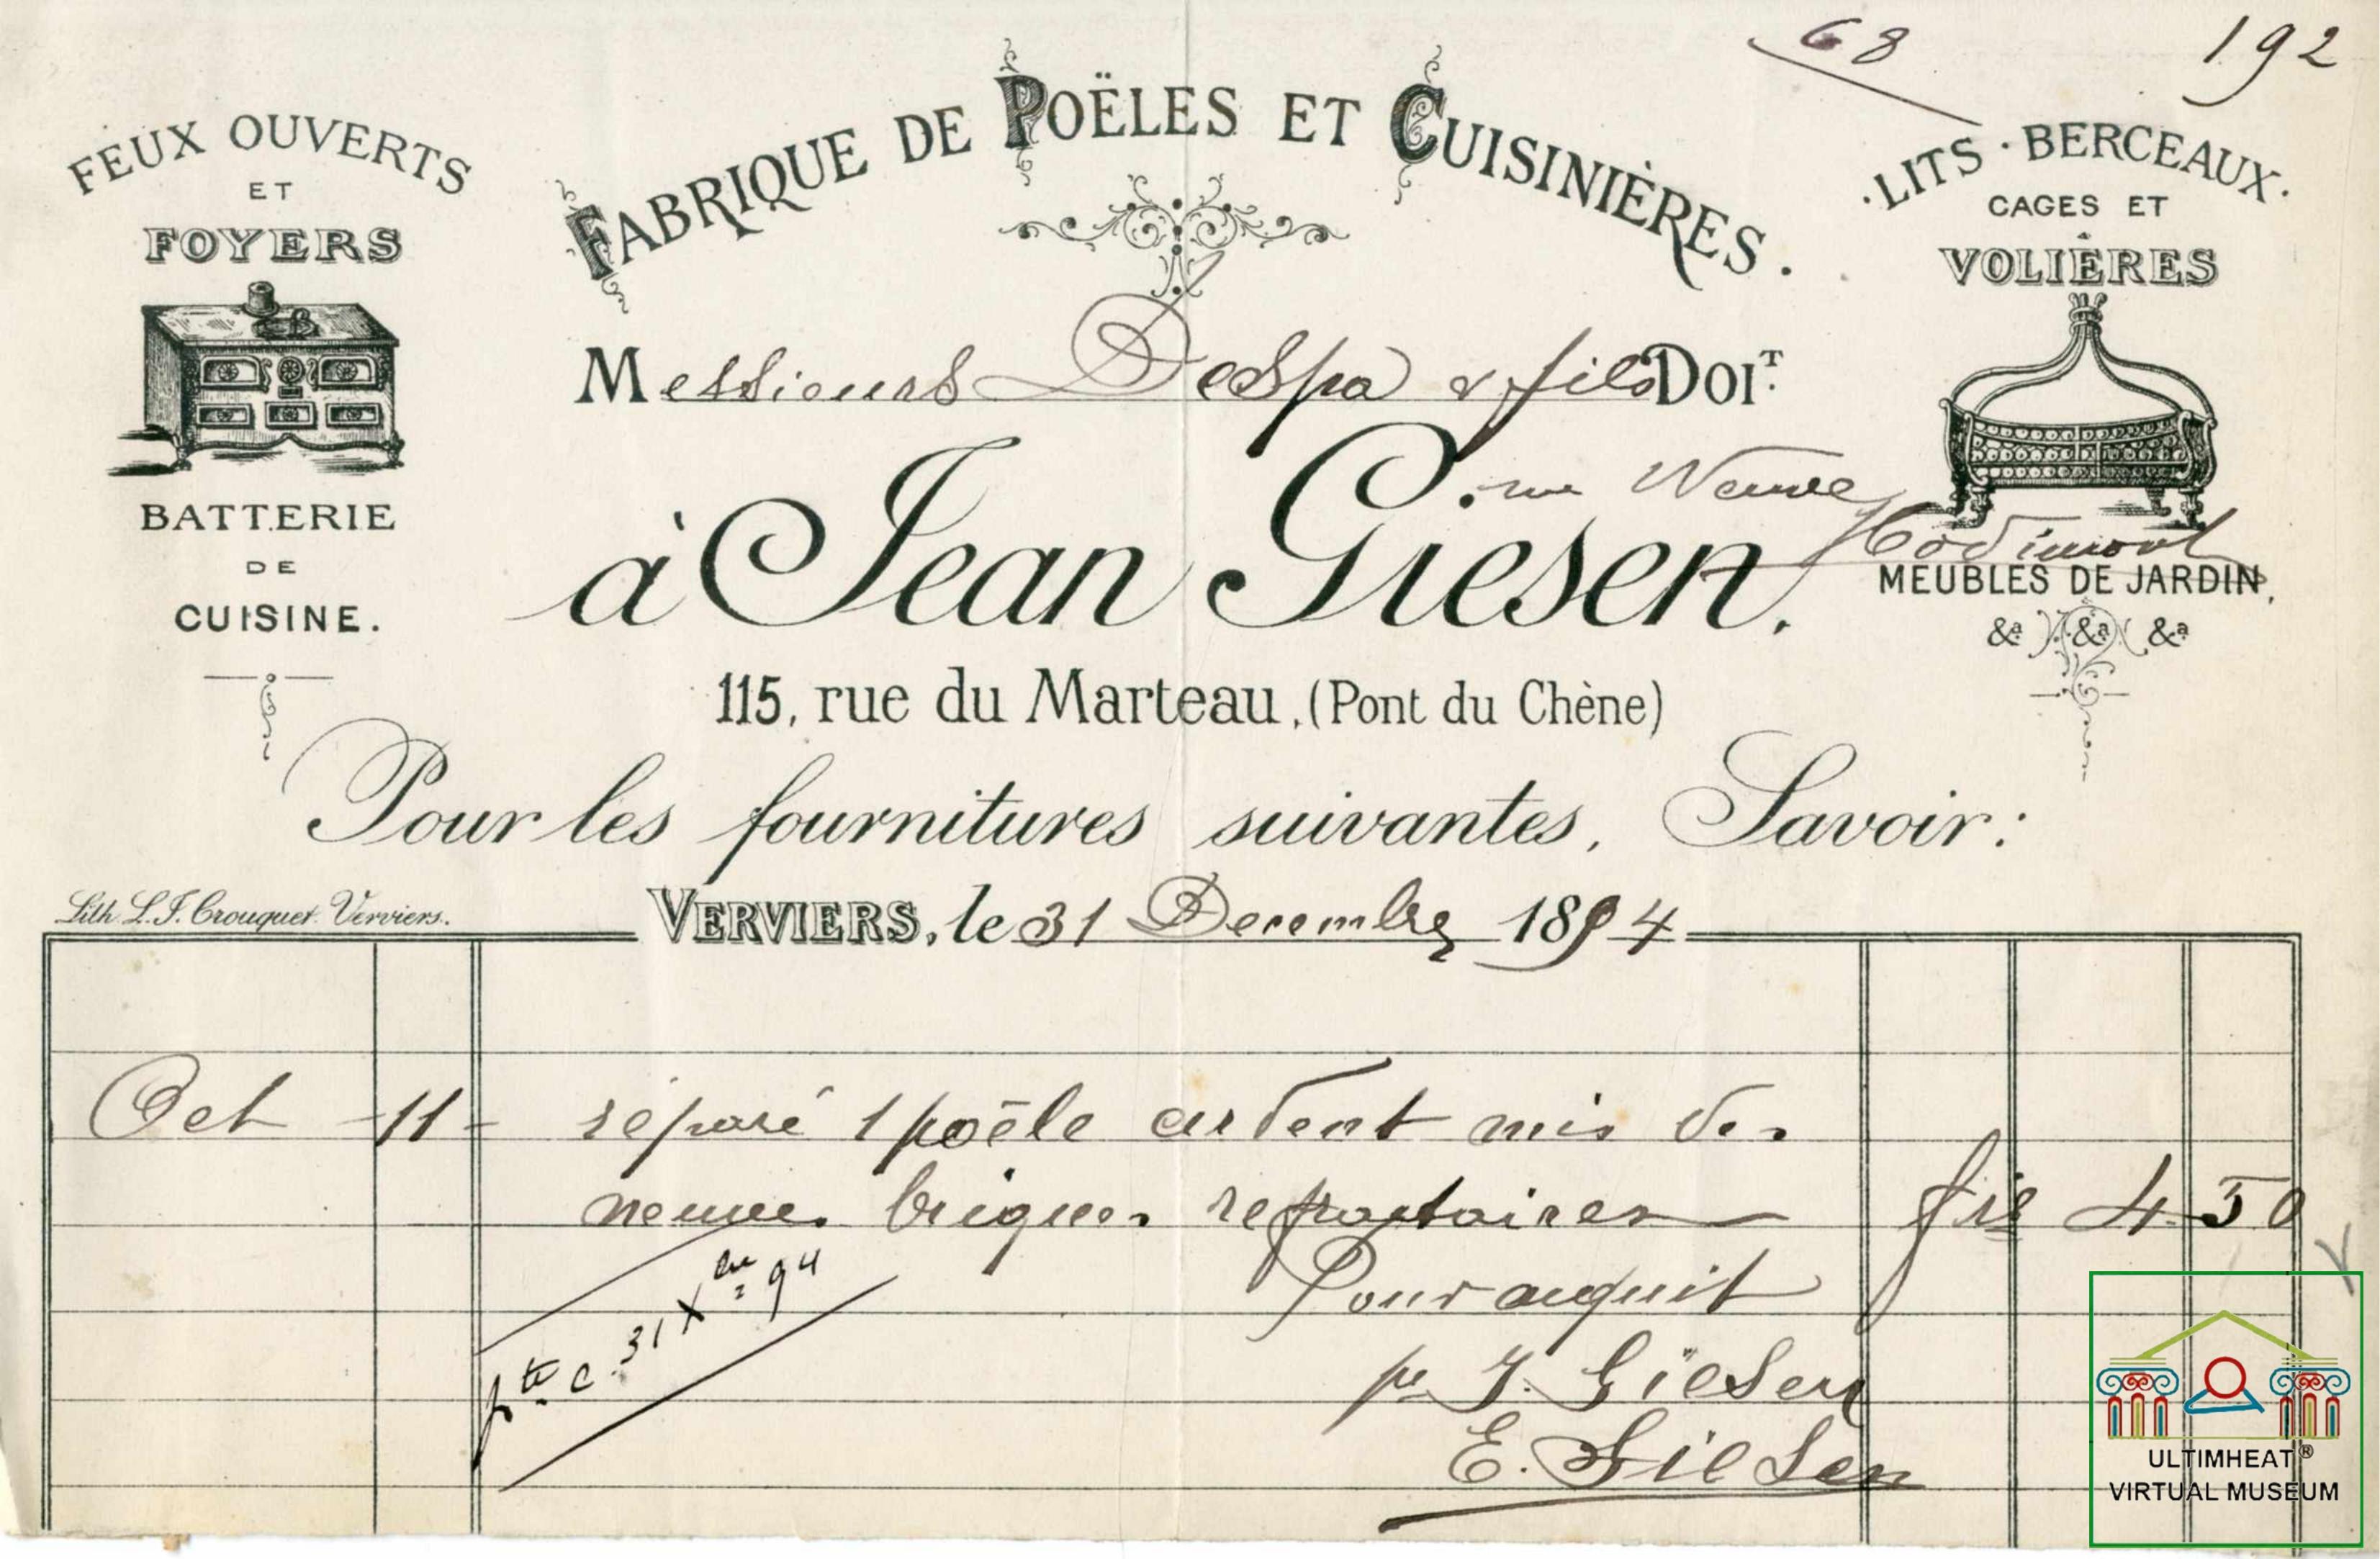 68
192
FEUX OUVERTS
ET
FOYERS
BATTERIE
DE
CUISINE.
FABRIQUE DE POËLES ET CUISINIÈRES.
LITS · BERCEAUX.
CAGES ET
VOLIÈRES
MEUBLES DE JARDIN,
&a &a &a
Messieurs Despa & fils DOIT.
rue Neuve
Hodimont
à Jean Giesen.
115, rue du Marteau, (Pont du Chène)
Pour les fournitures suivantes, Savoir:
Lith. L.J. Crouquet. Verviers.
VERVIERS, le 31 Decembre 1894
Oct 11 réparé 1 poële ardent mis des
neuves briques refractaires frs 4 50
Pour acquit
31 Xbre 94
pr J. Giesen
E. Giesen
ULTIMHEAT®
VIRTUAL MUSEUM